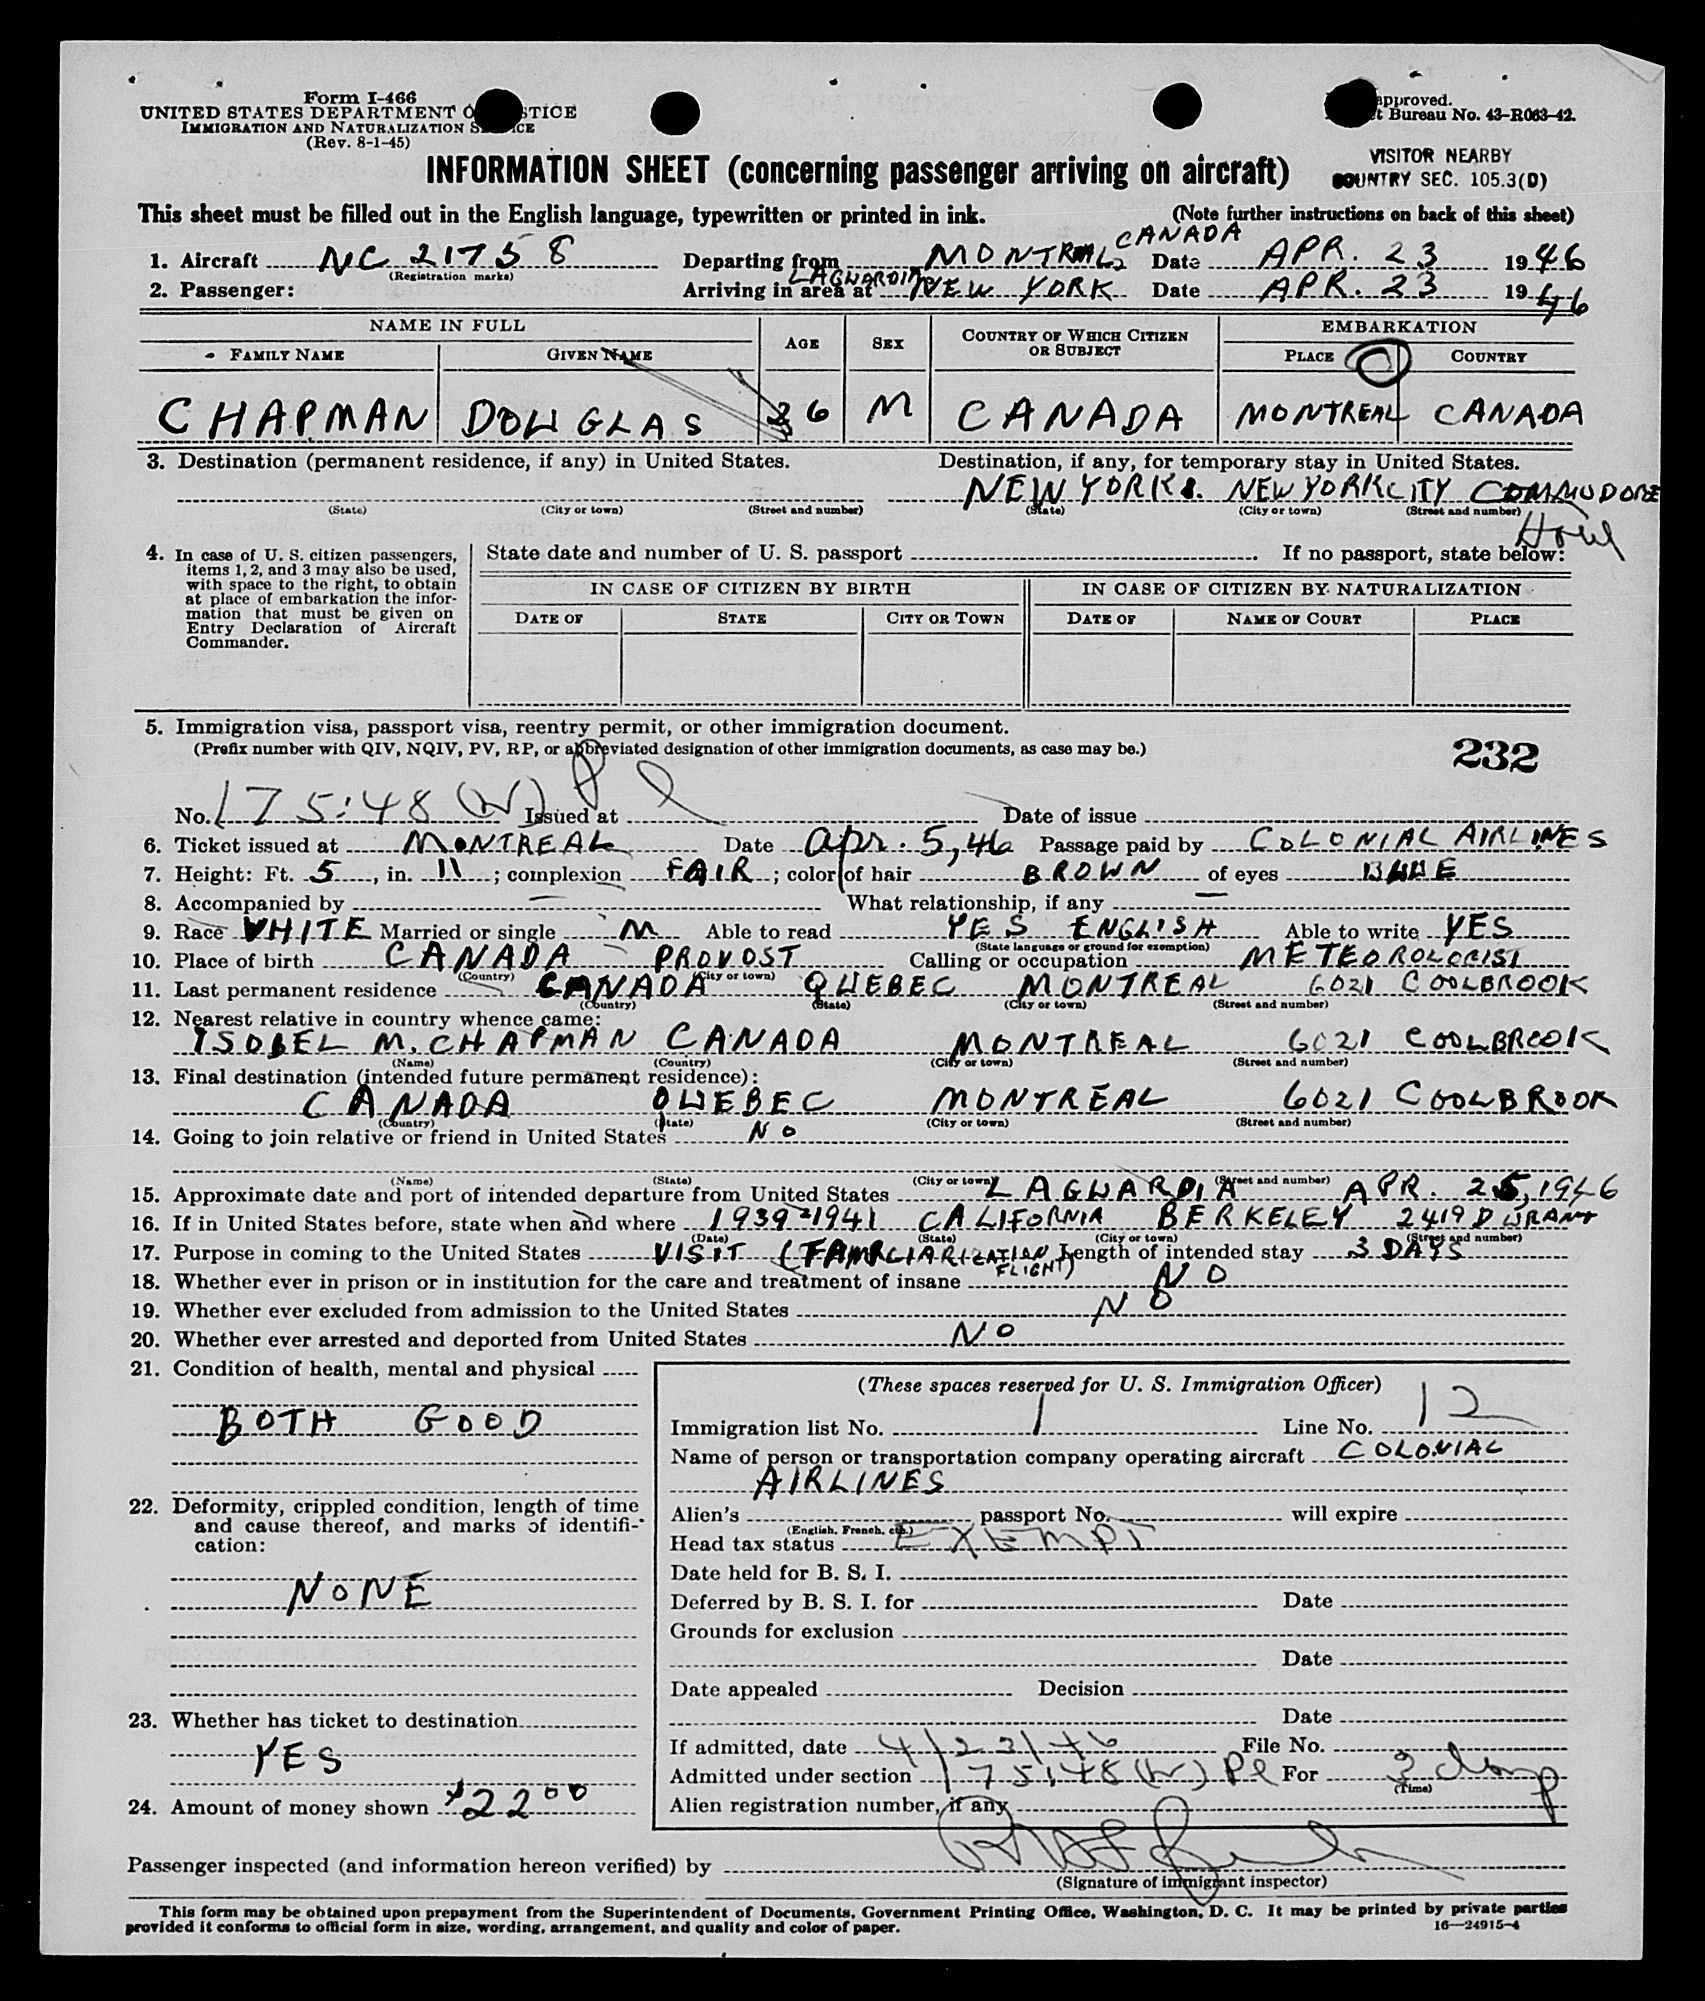 Form I-466
UNITED STATES DEPARTMENT O STICE
IMMIGRATION AND NATURALIZATION S ICE
(Rev. 8-1-45)
approved.
t Bureau No. 43-R063-42.
INFORMATION SHEET (concerning passenger arriving on aircraft)
VISITOR NEARBY
COUNTRY SEC. 105.3(D)
This sheet must be filled out in the English language, typewritten or printed in ink. (Note further instructions on back of this sheet)
1. Aircraft NC 21758 (Registration marks) Departing from MONTREAL, CANADA Date APR. 23 1946
2. Passenger: Arriving in area at LAGUARDIA NEW YORK Date APR. 23 1946
NAME IN FULL AGE SEX COUNTRY OF WHICH CITIZEN OR SUBJECT EMBARKATION
FAMILY NAME GIVEN NAME PLACE COUNTRY
CHAPMAN DOUGLAS 26 M CANADA MONTREAL CANADA
3. Destination (permanent residence, if any) in United States. Destination, if any, for temporary stay in United States.
NEW YORK NEW YORK CITY COMMODORE Hotel
(State) (City or town) (Street and number) (State) (City or town) (Street and number)
4. In case of U. S. citizen passengers, items 1, 2, and 3 may also be used, with space to the right, to obtain at place of embarkation the information that must be given on Entry Declaration of Aircraft Commander.
State date and number of U. S. passport If no passport, state below:
IN CASE OF CITIZEN BY BIRTH IN CASE OF CITIZEN BY NATURALIZATION
DATE OF STATE CITY OR TOWN DATE OF NAME OF COURT PLACE
5. Immigration visa, passport visa, reentry permit, or other immigration document.
(Prefix number with QIV, NQIV, PV, RP, or abbreviated designation of other immigration documents, as case may be.)
232
No. 175:48 (W) Pl Issued at Date of issue
6. Ticket issued at MONTREAL Date apr. 5, 46 Passage paid by COLONIAL AIRLINES
7. Height: Ft. 5, in. 11; complexion FAIR; color of hair BROWN of eyes BLUE
8. Accompanied by — What relationship, if any —
9. Race WHITE Married or single M Able to read YES ENGLISH Able to write YES
(State language or ground for exemption)
10. Place of birth CANADA - PROVOST Calling or occupation METEOROLOGIST
(Country) (City or town)
11. Last permanent residence CANADA QUEBEC MONTREAL 6021 COOLBROOK
(Country) (State) (City or town) (Street and number)
12. Nearest relative in country whence came:
ISOBEL M. CHAPMAN CANADA MONTREAL 6021 COOLBROOK
(Name) (Country) (City or town) (Street and number)
13. Final destination (intended future permanent residence):
CANADA QUEBEC MONTREAL 6021 COOLBROOK
(Country) (State) (City or town) (Street and number)
14. Going to join relative or friend in United States NO
(Name) (State) (City or town) (Street and number)
15. Approximate date and port of intended departure from United States LAGUARDIA APR. 25, 1946
16. If in United States before, state when and where 1939-1941 CALIFORNIA BERKELEY 2419 DURANT
(Date) (State) (City or town) (Street and number)
17. Purpose in coming to the United States VISIT (FAMILIARIZATION FLIGHT) Length of intended stay 3 DAYS
18. Whether ever in prison or in institution for the care and treatment of insane NO
19. Whether ever excluded from admission to the United States NO
20. Whether ever arrested and deported from United States NO
21. Condition of health, mental and physical
BOTH GOOD
22. Deformity, crippled condition, length of time and cause thereof, and marks of identification:
NONE
23. Whether has ticket to destination
YES
24. Amount of money shown $22 00
(These spaces reserved for U. S. Immigration Officer)
Immigration list No. 1 Line No. 12
Name of person or transportation company operating aircraft COLONIAL
AIRLINES
Alien's passport No. will expire
(English, French, etc.)
Head tax status EXEMPT
Date held for B. S. I.
Deferred by B. S. I. for Date
Grounds for exclusion
Date
Date appealed Decision
Date
If admitted, date 4/23/46 File No.
Admitted under section 175:48 (W) Pl For 3 days
(Time)
Alien registration number, if any
Passenger inspected (and information hereon verified) by
(Signature of immigrant inspector)
This form may be obtained upon prepayment from the Superintendent of Documents, Government Printing Office, Washington, D. C. It may be printed by private parties
provided it conforms to official form in size, wording, arrangement, and quality and color of paper. 16—24915-4